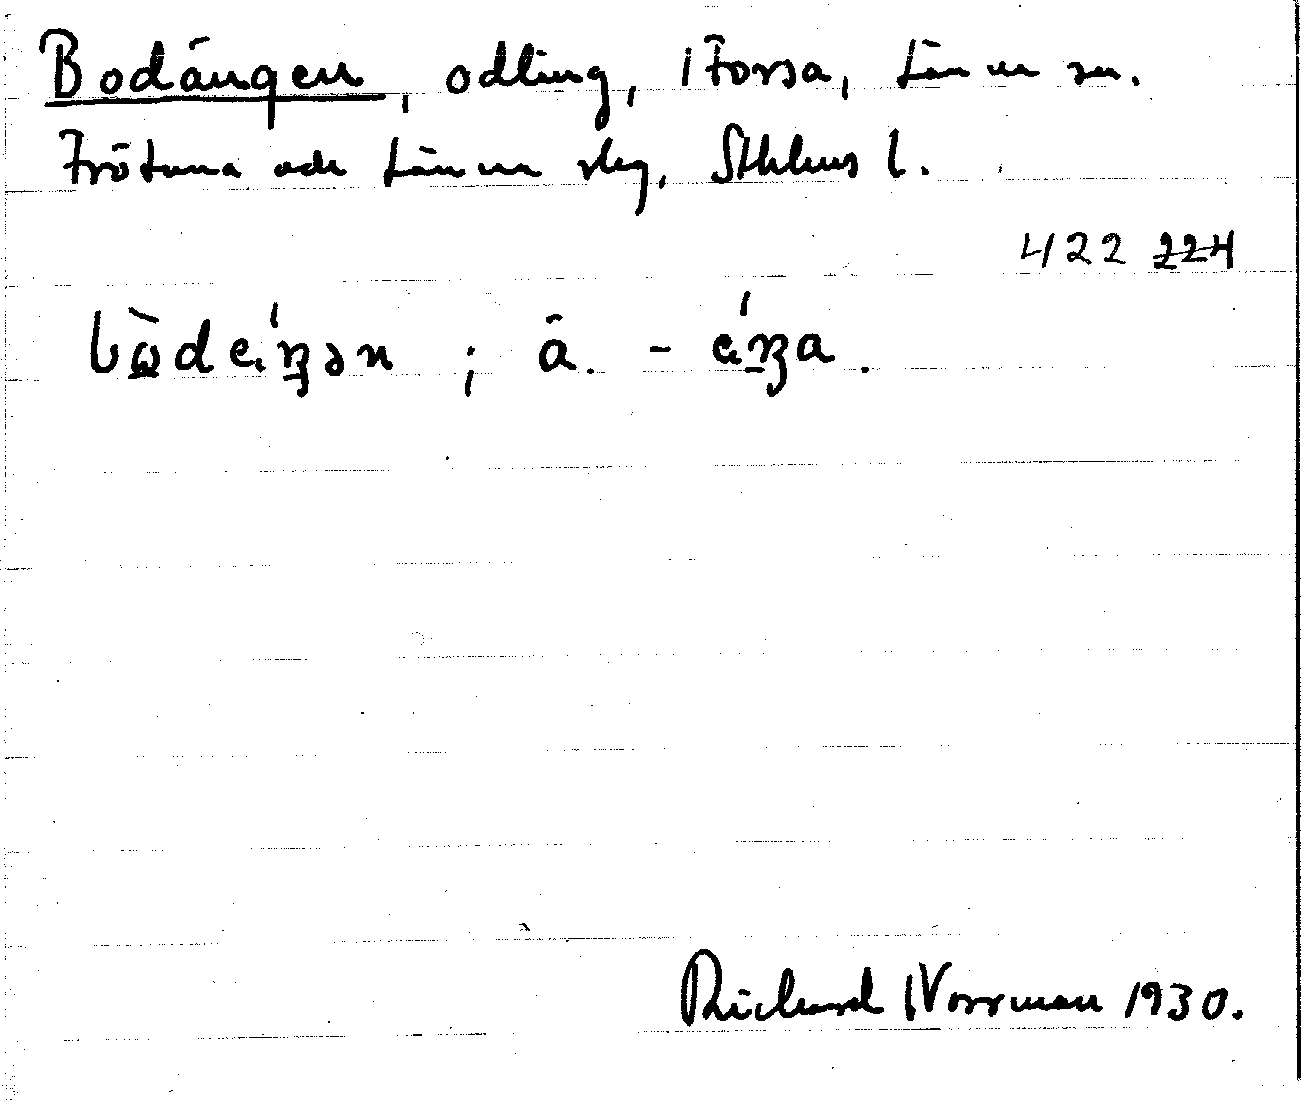 Bodängen, odling, i Forsa, Länna sn.
Frötuna och Länna skg, Sthlms l.
422 224
ä. -
Richard Norrman 1930.